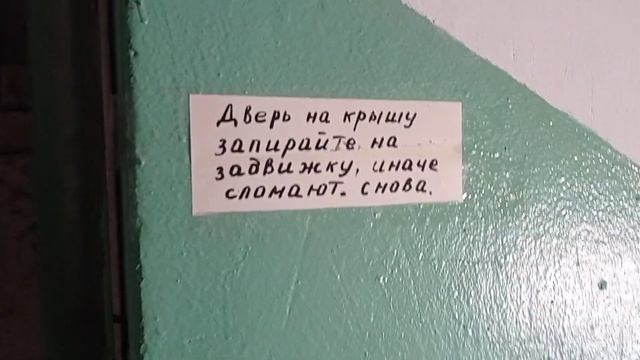 Дверь на крышу
запирайте на
задвижку, иначе
сломают. снова.